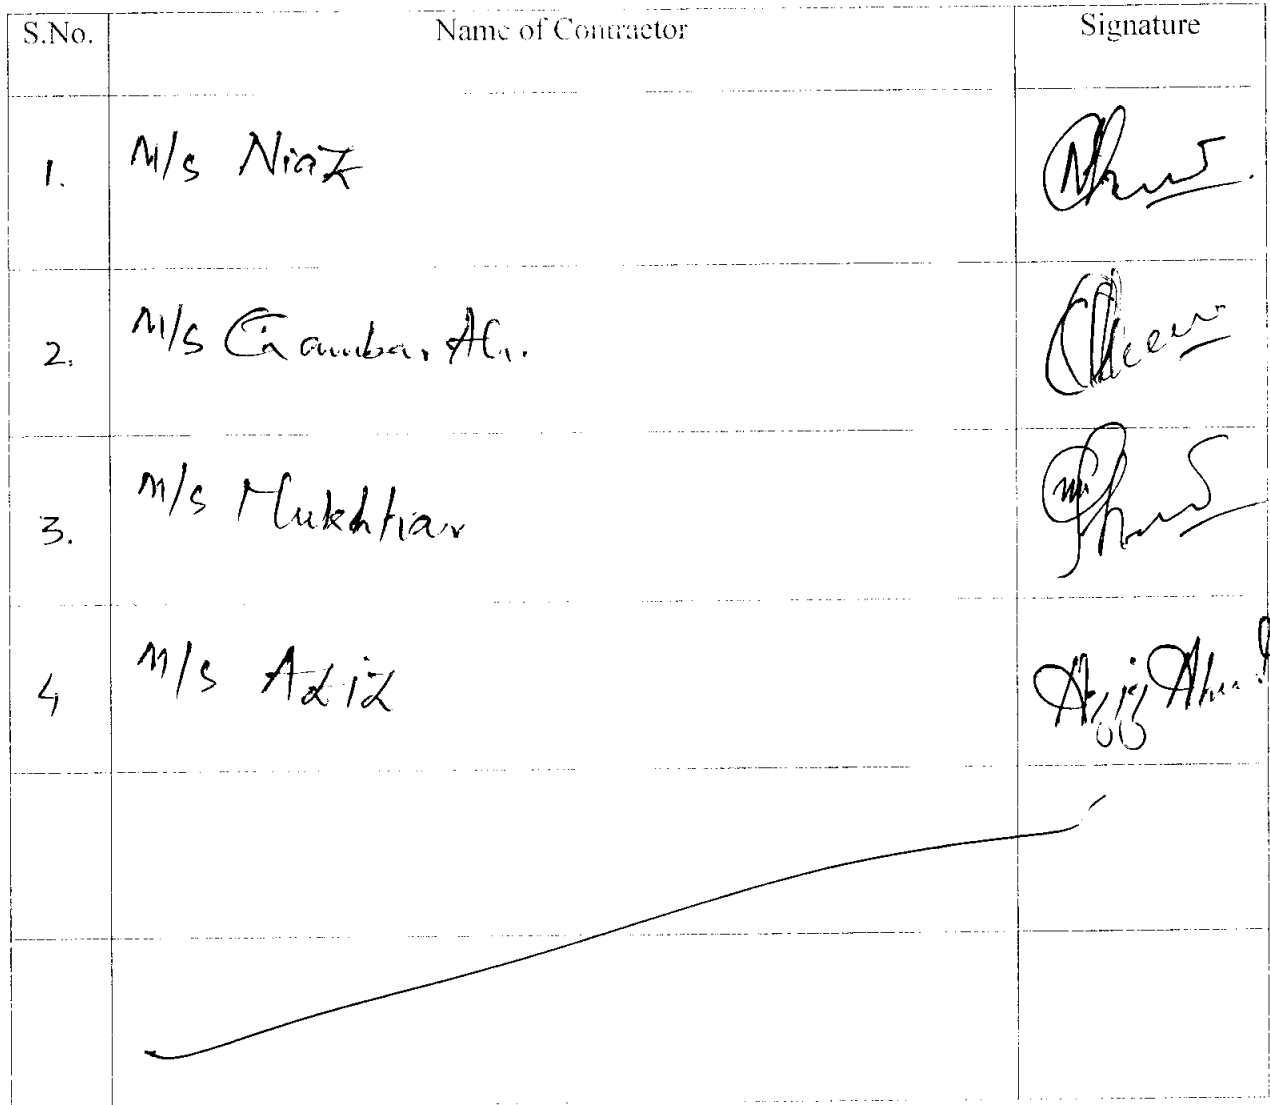 S.No. Name of Contractor Signature
1. M/s Niaz
2. M/s Gambar Ali
3. M/s Mukhtiar
4 M/s Aziz